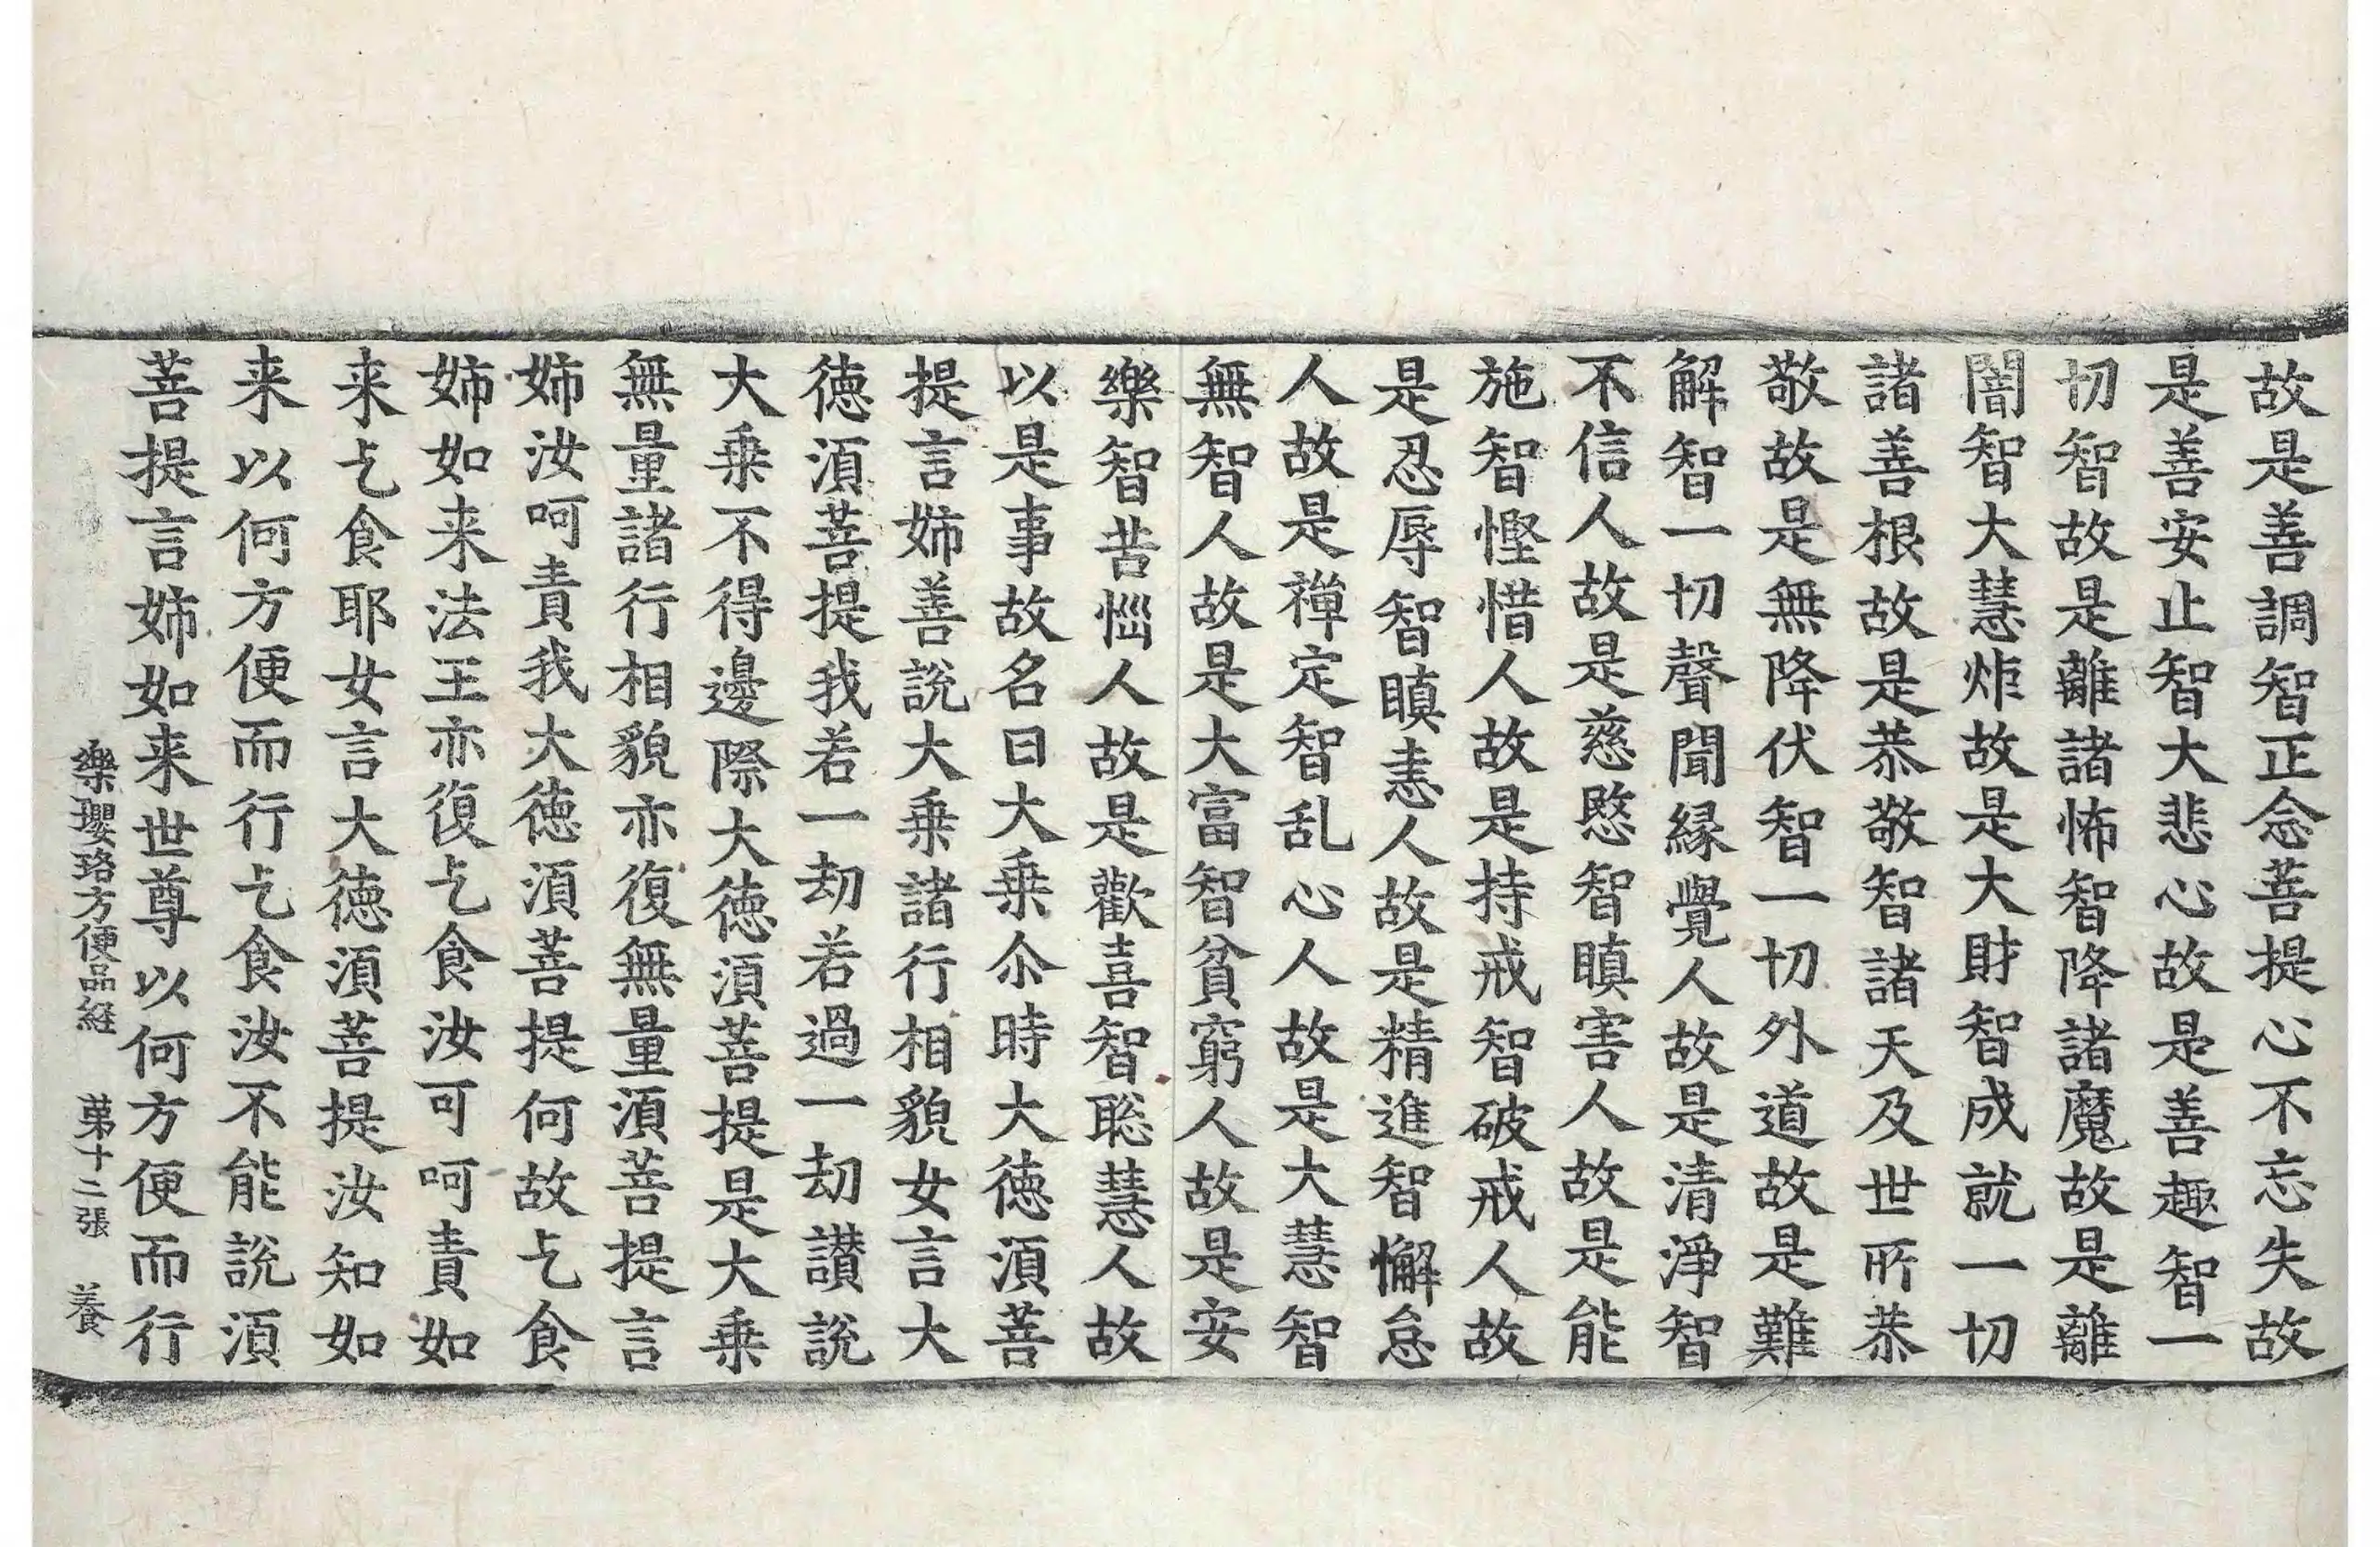 故是善調智正念菩提心不忘失故
是善安止智大悲心故是善趣智一
切智故是離諸怖智降諸魔故是離
闇智大慧炬故是大財智成就一切
諸善根故是恭敬智諸天及世所恭
敬故是無降伏智一切外道故是難
解智一切聲聞緣覺人故是清淨智
不信人故是慈愍智瞋害人故是能
施智慳惜人故是持戒智破戒人故
是忍辱智瞋恚人故是精進智懈怠
人故是禪定智乱心人故是大慧智
無智人故是大富智貧窮人故是安
樂智苦惱人故是歡喜智聡慧人故
以是事故名曰大乗尒時大徳湏菩
提言姉善說大乗諸行相貌女言大
徳湏菩提我若一劫若過一劫讃說
大乗不得邊際大徳湏菩提是大乗
無量諸行相貌亦復無量湏菩提言
姉汝呵責我大徳湏菩提何故乞食
姉如来法王亦復乞食汝可呵責如
来乞食耶女言大徳湏菩提汝知如
来以何方便而行乞食汝不能說湏
菩提言姉如来世尊以何方便而行
樂瓔珞方便品経 苐十二張 養